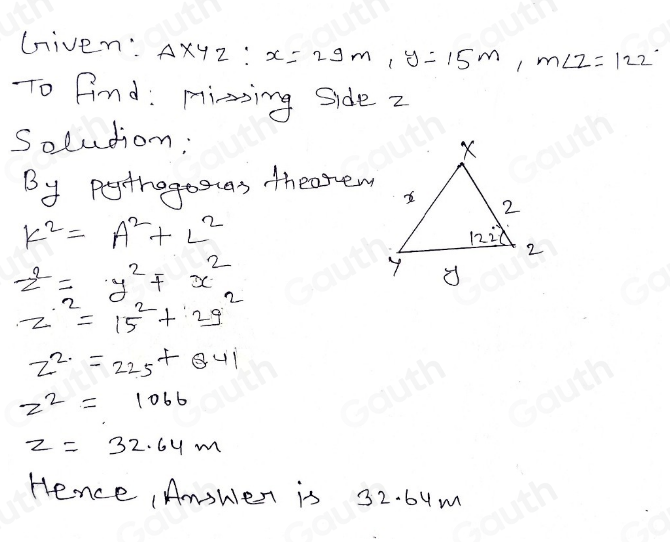 Given: ΔXYZ : x = 29m , y = 15m , m∠Z = 122°
To find: Missing Side z
Solution:
By pythagoras theorem
K² = A² + L²
z² = y² + x²
z² = 15² + 29²
z² = 225 + 841
z² = 1066
z = 32.64 m
Hence, Answer is 32.64m
X
x
z
122°
Y
z
y